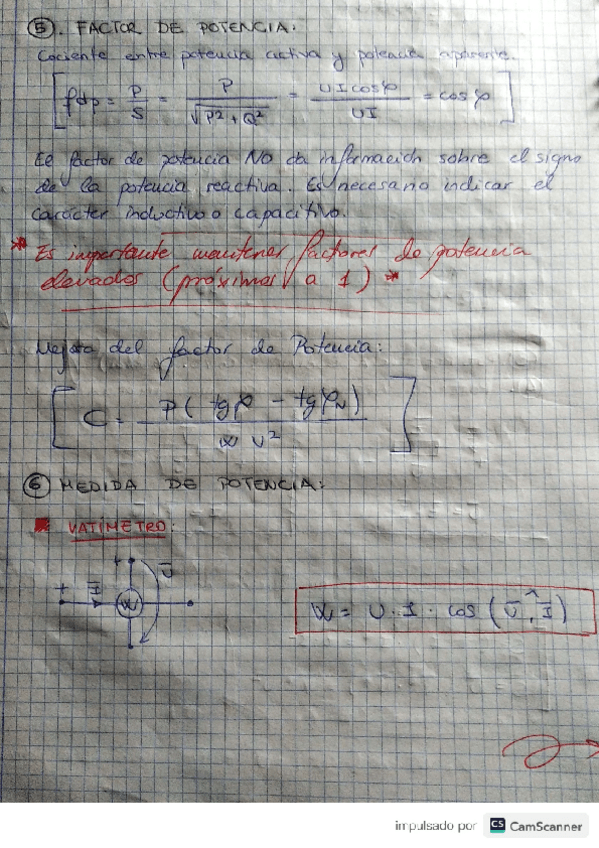 ⑤. FACTOR DE POTENCIA:
Cociente entre potencia activa y potencia aparente.
[ fdp = P/S = P/√(P²+Q²) = UI cosφ/UI = cosφ ]
El factor de potencia NO da información sobre el signo
de la potencia reactiva. Es necesario indicar el
carácter inductivo o capacitivo.
* Es importante mantener factores de potencia
elevados (próximos a 1) *
Mejora del factor de Potencia:
[ C = P( tgφ - tgφN) / ω U² ]
⑥ MEDIDA DE POTENCIA:
VATÍMETRO:
+ U
+ I W
W = U · I · cos (U, I)
impulsado por CS CamScanner